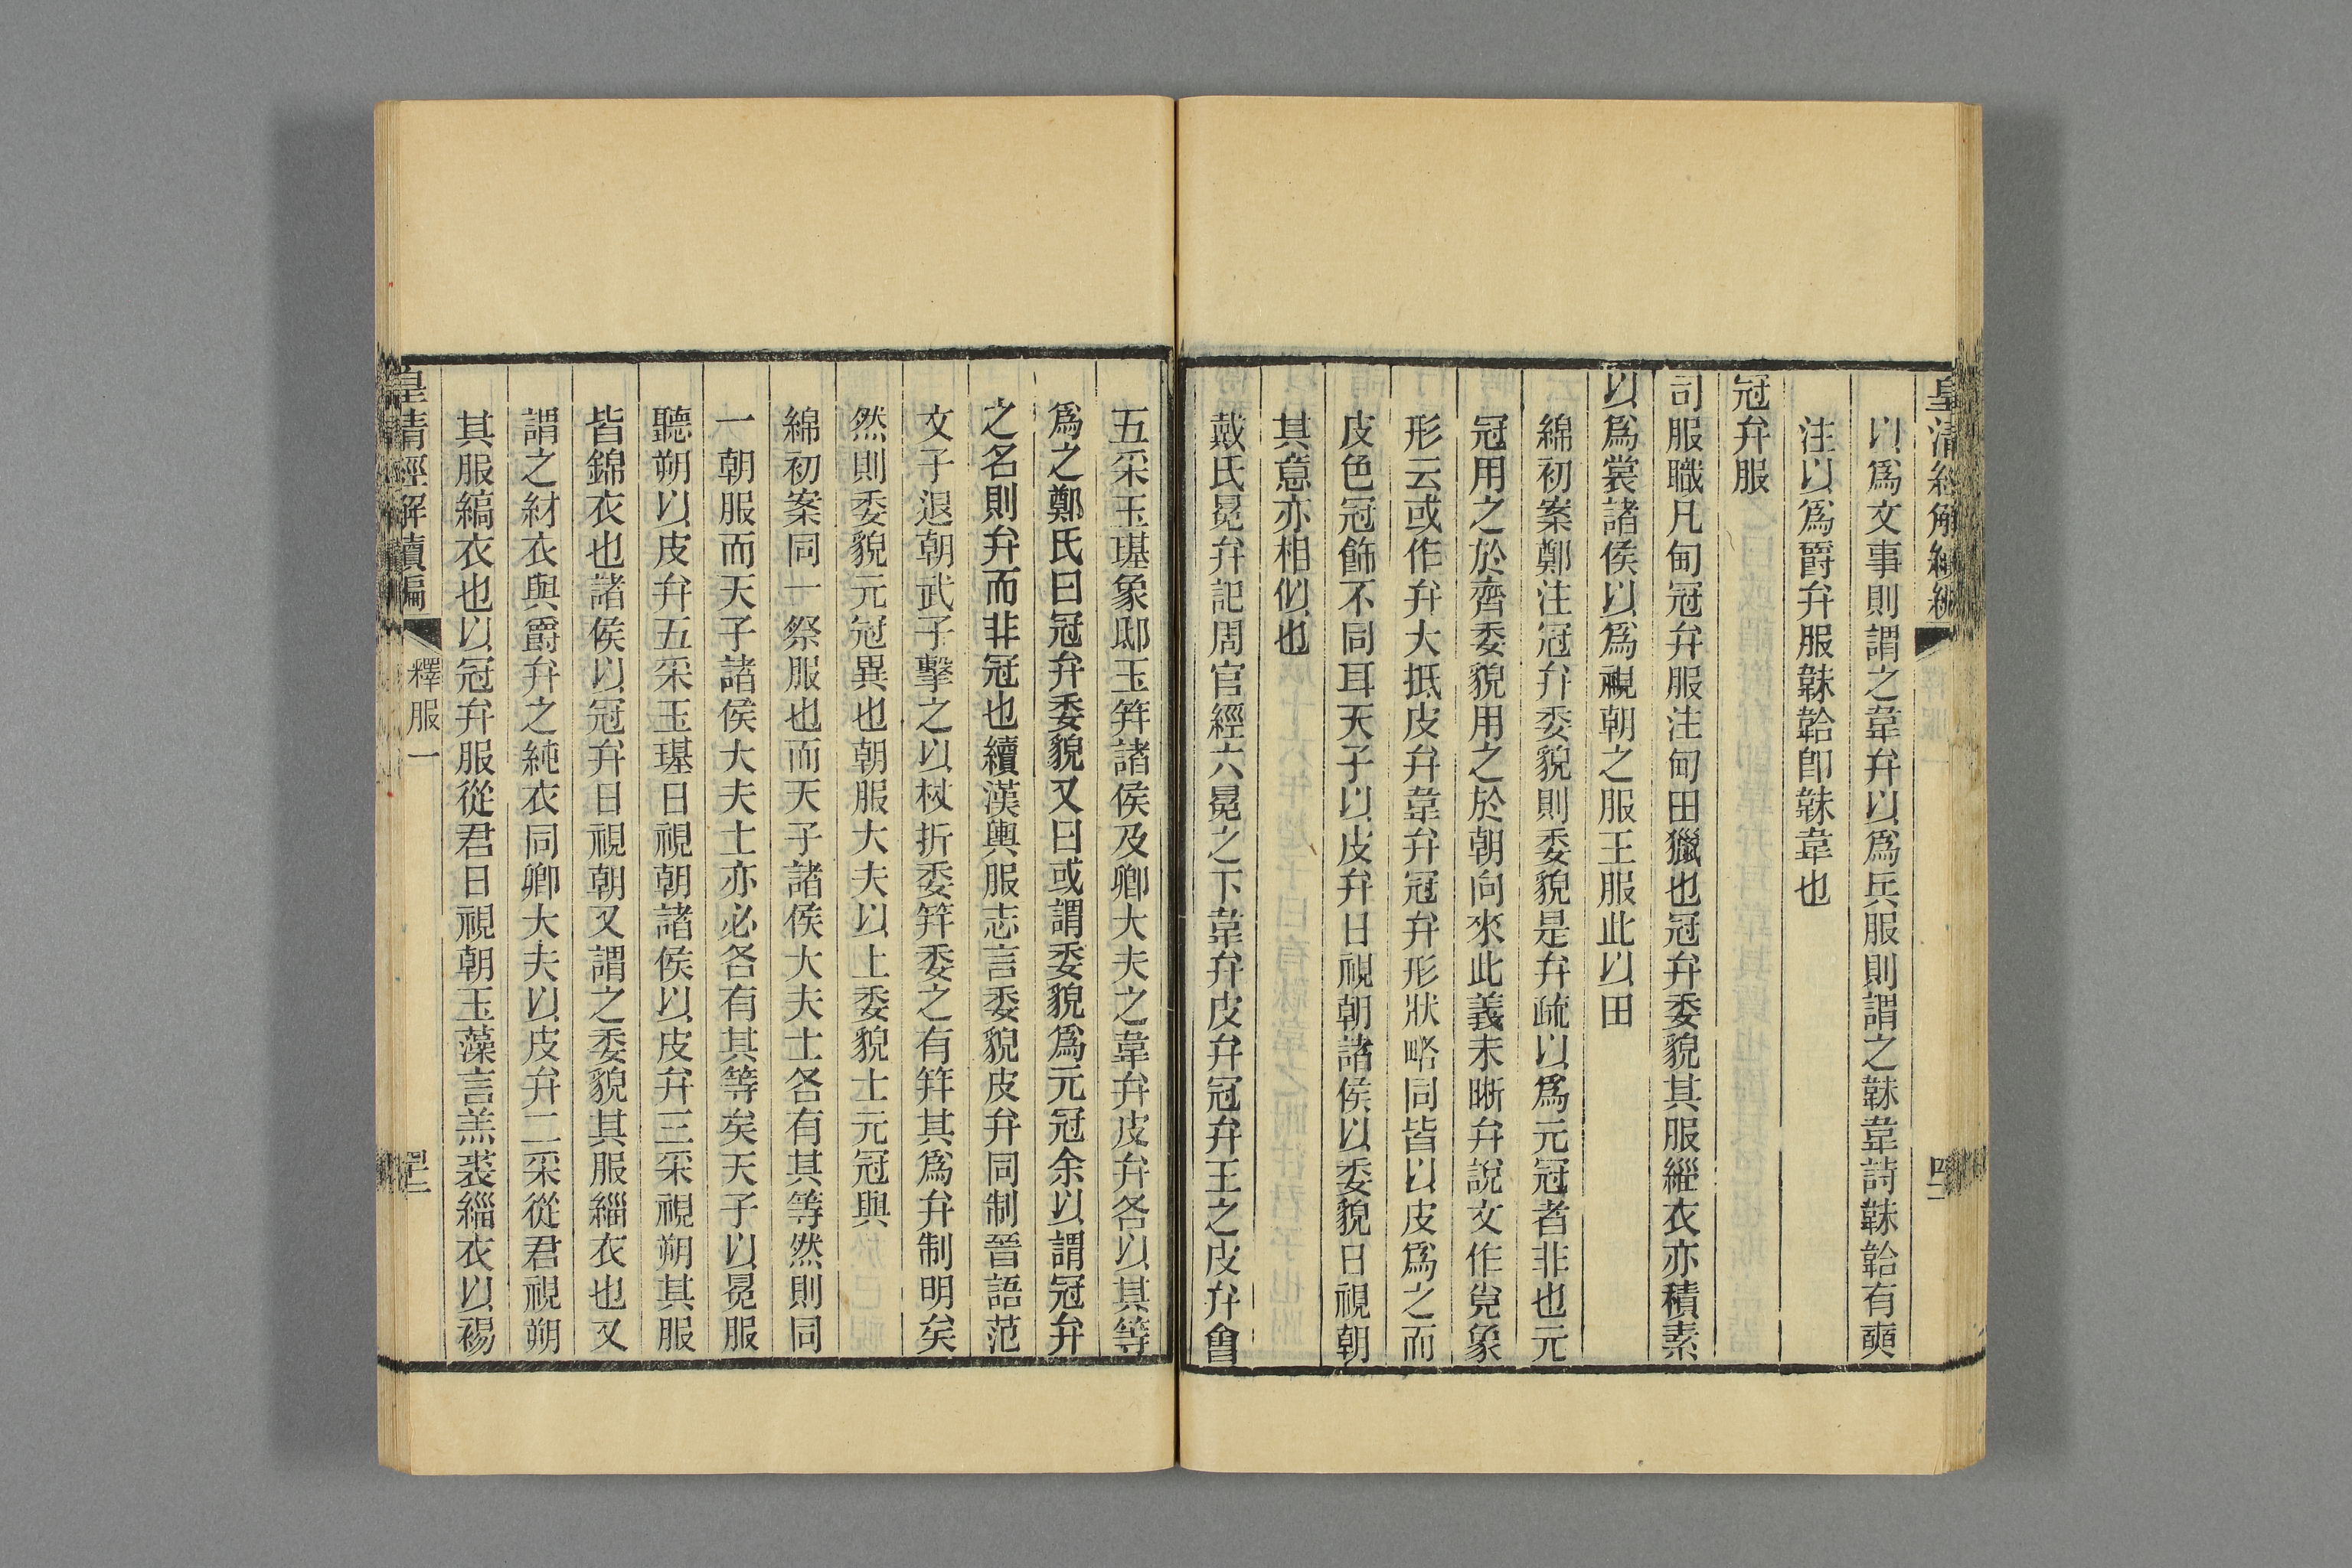 皇清經解續編
以爲文事則謂之韋弁以爲兵服則謂之韎韋詩韎韐有奭
注以爲爵弁服韎韐卽韎韋也
冠弁服
司服職凡甸冠弁服注甸田獵也冠弁委貌其服緇衣亦積素
以爲裳諸侯以爲視朝之服王服此以田
綿初案鄭注冠弁委貌則委貌是弁疏以爲元冠者非也元
冠用之於齊委貌用之於朝向來此義未晰弁說文作覍象
形云或作弁大抵皮弁韋弁冠弁形狀略同皆以皮爲之而
皮色冠飾不同耳天子以皮弁日視朝諸侯以委貌日視朝
其意亦相似也
戴氏冕弁記周官經六冕之下韋弁皮弁冠弁王之皮弁會
五采玉璂象邸玉笄諸侯及卿大夫之韋弁皮弁各以其等
爲之鄭氏曰冠弁委貌又曰或謂委貌爲元冠余以謂冠弁
之名則弁而非冠也續漢輿服志言委貌皮弁同制晉語范
文子退朝武子擊之以杖折委笄委之有笄其爲弁制明矣
然則委貌元冠異也朝服大夫以上委貌士元冠與
綿初案同一祭服也而天子諸侯大夫士各有其等然則同
一朝服而天子諸侯大夫士亦必各有其等矣天子以冕服
聽朔以皮弁五采玉璂日視朝諸侯以皮弁三采視朔其服
皆錦衣也諸侯以冠弁日視朝又謂之委貌其服緇衣也又
謂之紂衣與爵弁之純衣同卿大夫以皮弁二采從君視朔
其服縞衣也以冠弁服從君日視朝玉藻言羔裘緇衣以裼
皇清經解續編
釋服一